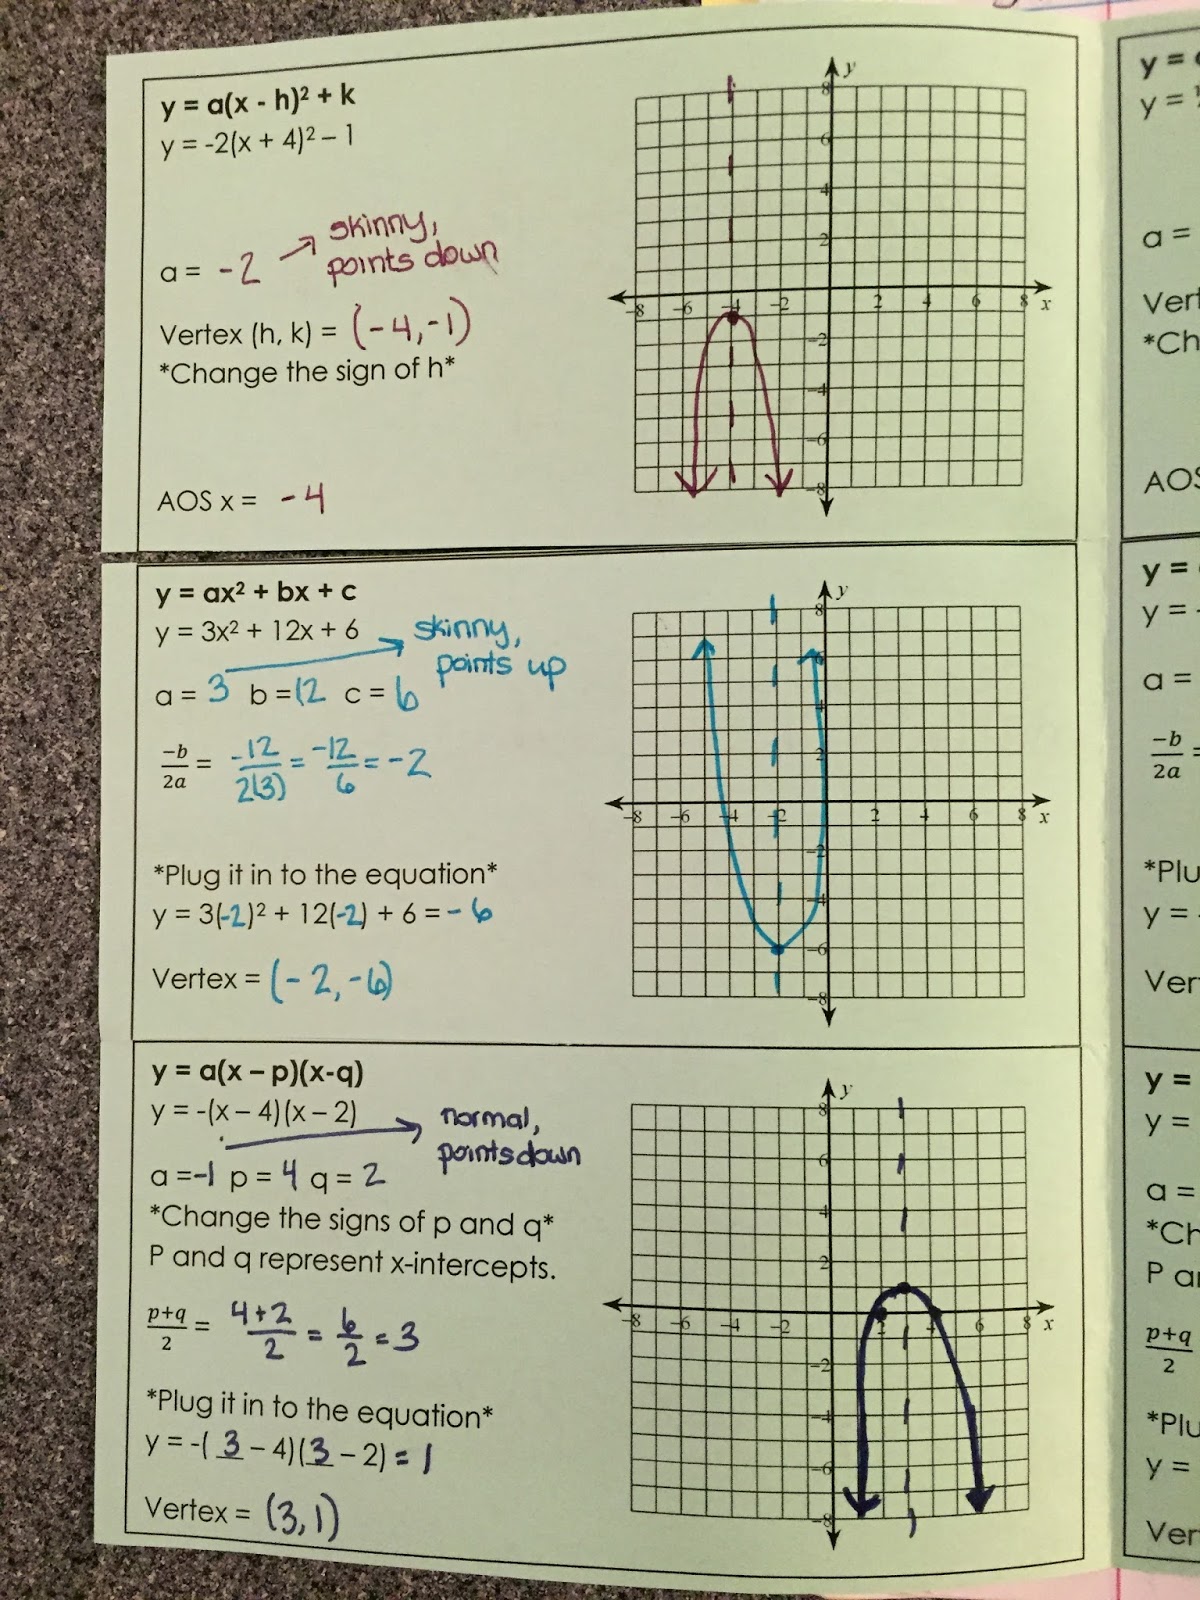 y = a(x - h)² + k
y = -2(x + 4)² – 1
a = -2 → skinny,
points down
Vertex (h, k) = (-4,-1)
*Change the sign of h*
AOS x = -4
y
8
6
4
2
-8 -6 -4 -2 2 4 6 8 x
-2
-4
-6
-8
y = ax² + bx + c
y = 3x² + 12x + 6 → skinny,
points up
a = 3 b = 12 c = 6
-b/2a = -12/2(3) = -12/6 = -2
*Plug it in to the equation*
y = 3(-2)² + 12(-2) + 6 = -6
Vertex = (-2,-6)
y
8
6
4
2
-8 -6 -4 -2 2 4 6 8 x
-2
-4
-6
-8
y = a(x – p)(x-q)
y = -(x – 4)(x – 2) → normal,
points down
a = -1 p = 4 q = 2
*Change the signs of p and q*
P and q represent x-intercepts.
p+q/2 = 4+2/2 = 6/2 = 3
*Plug it in to the equation*
y = -( 3 – 4)(3 – 2) = 1
Vertex = (3,1)
y
8
6
4
2
-8 -6 -4 -2 2 4 6 8 x
-2
-4
-6
-8
y =
y =
a =
Vert
*Ch
AOS
y =
y =
a =
-b/2a =
*Plu
y =
Ver
y =
y =
a =
*Ch
P a
p+q/2
*Plu
y =
Ver